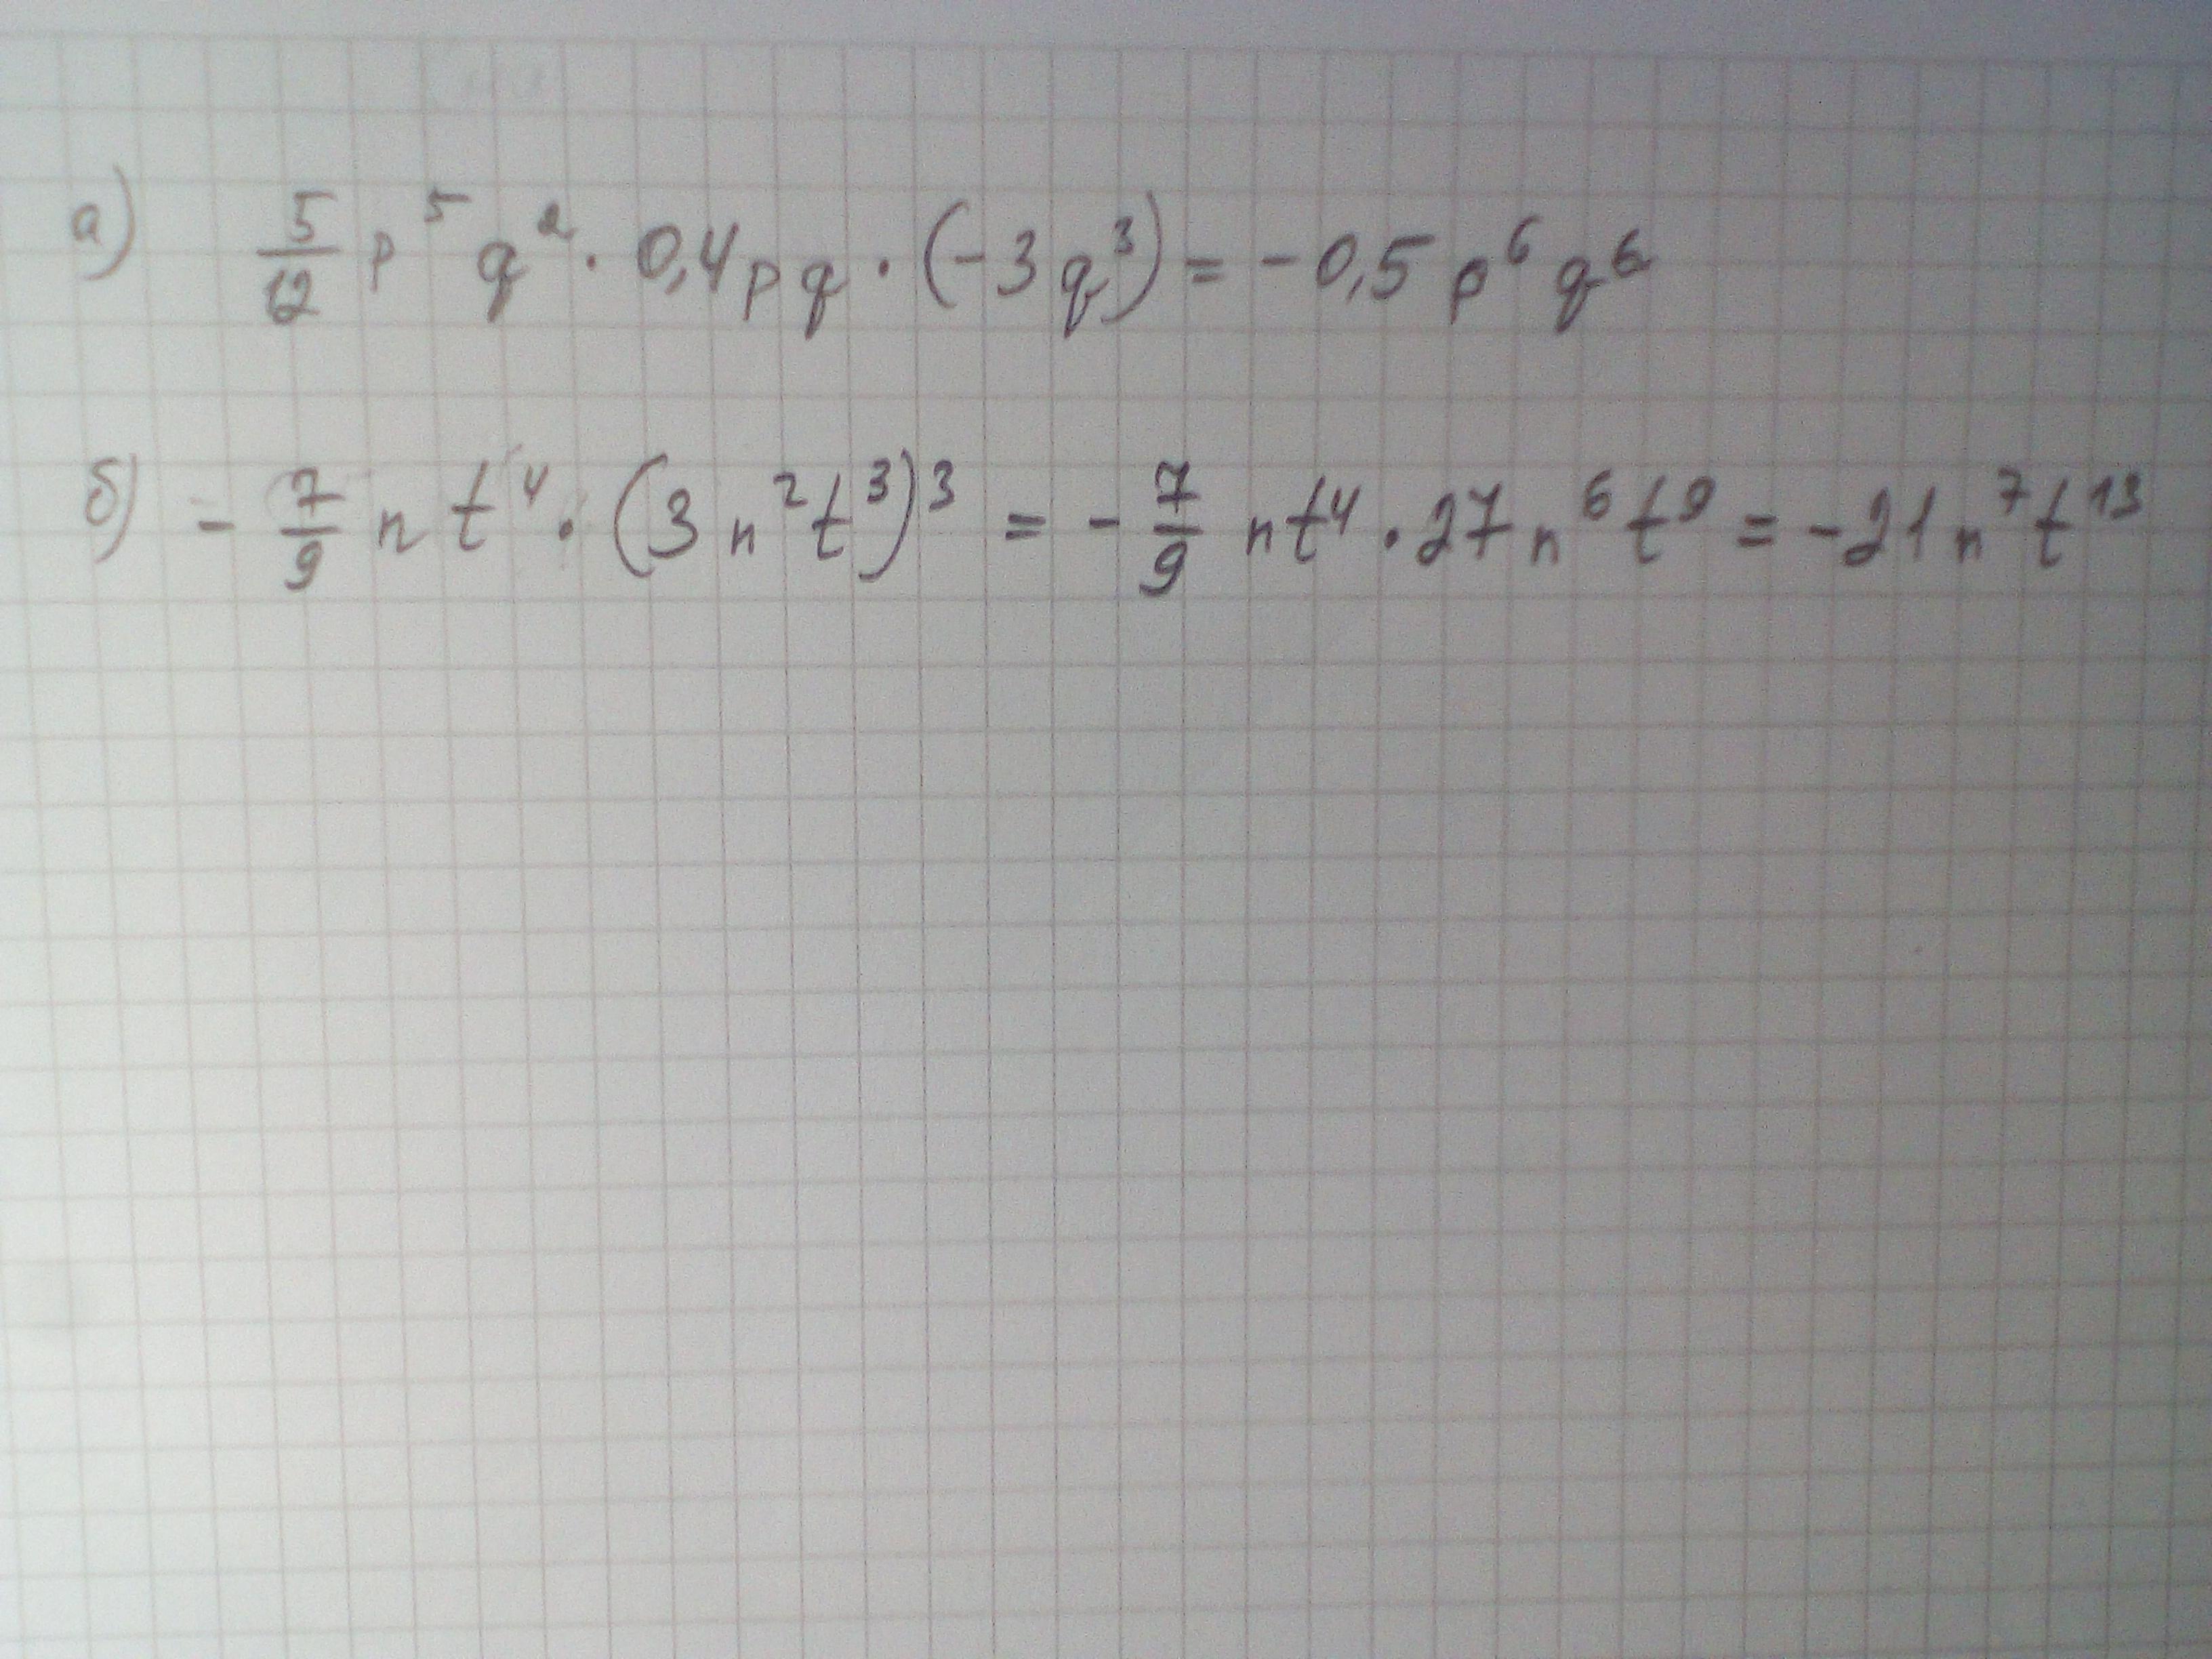 а) 5/12 p⁵ q² · 0,4 p q · (-3 q³) = -0,5 p⁶ q⁶
б) - 7/9 n t⁴ · (3 n² t³)³ = - 7/9 n t⁴ · 27 n⁶ t⁹ = -21 n⁷ t¹³